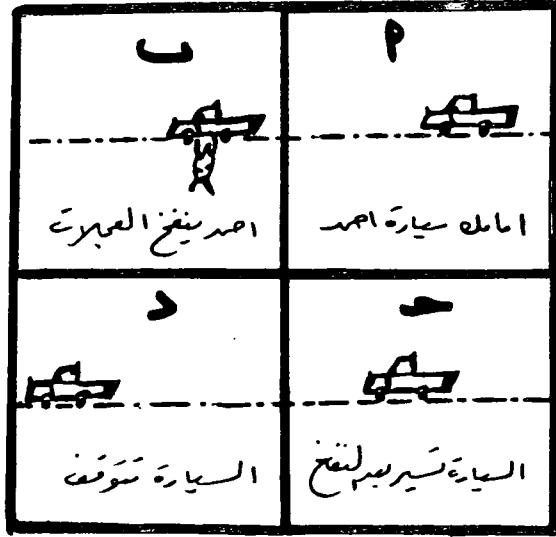 م
امامك سيارة احمد
ب
احمد ينفخ العجلات
ح
السيارة تسير بعد النفخ
د
السيارة تتوقف